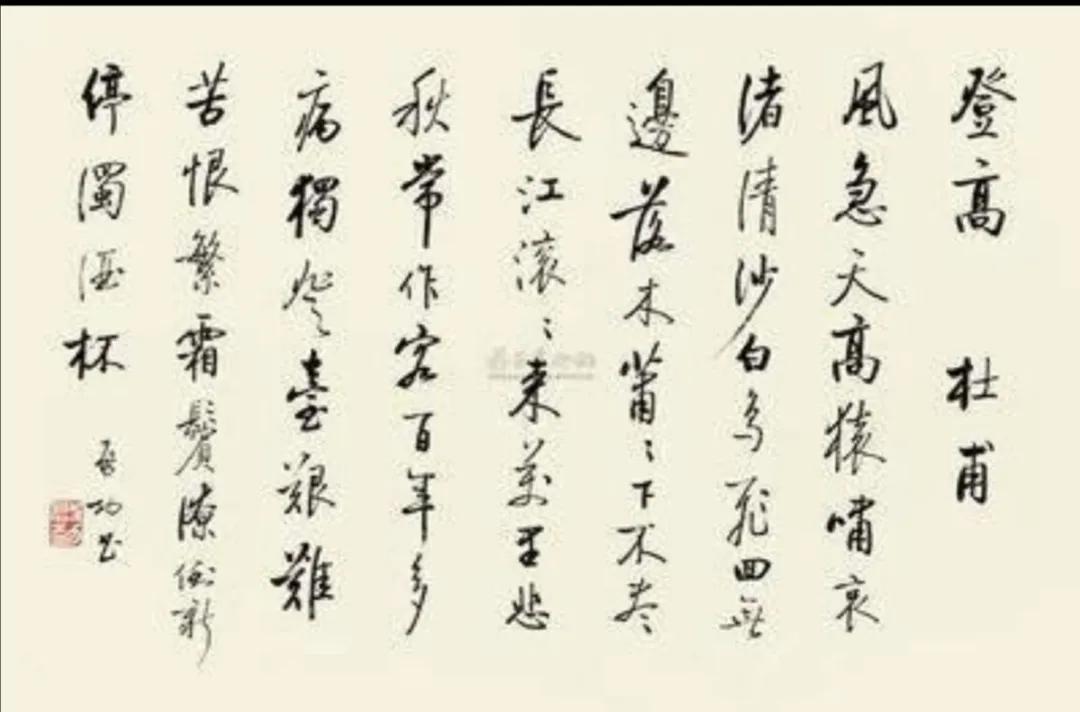 登高 杜甫
風急天高猿嘯哀
渚清沙白鳥飛回無
邊落木蕭〻下不尽
長江滾〻来萬里悲
秋常作客百年多
病獨登臺艱難
苦恨繁霜鬢潦倒新
停濁酒杯
啟功書